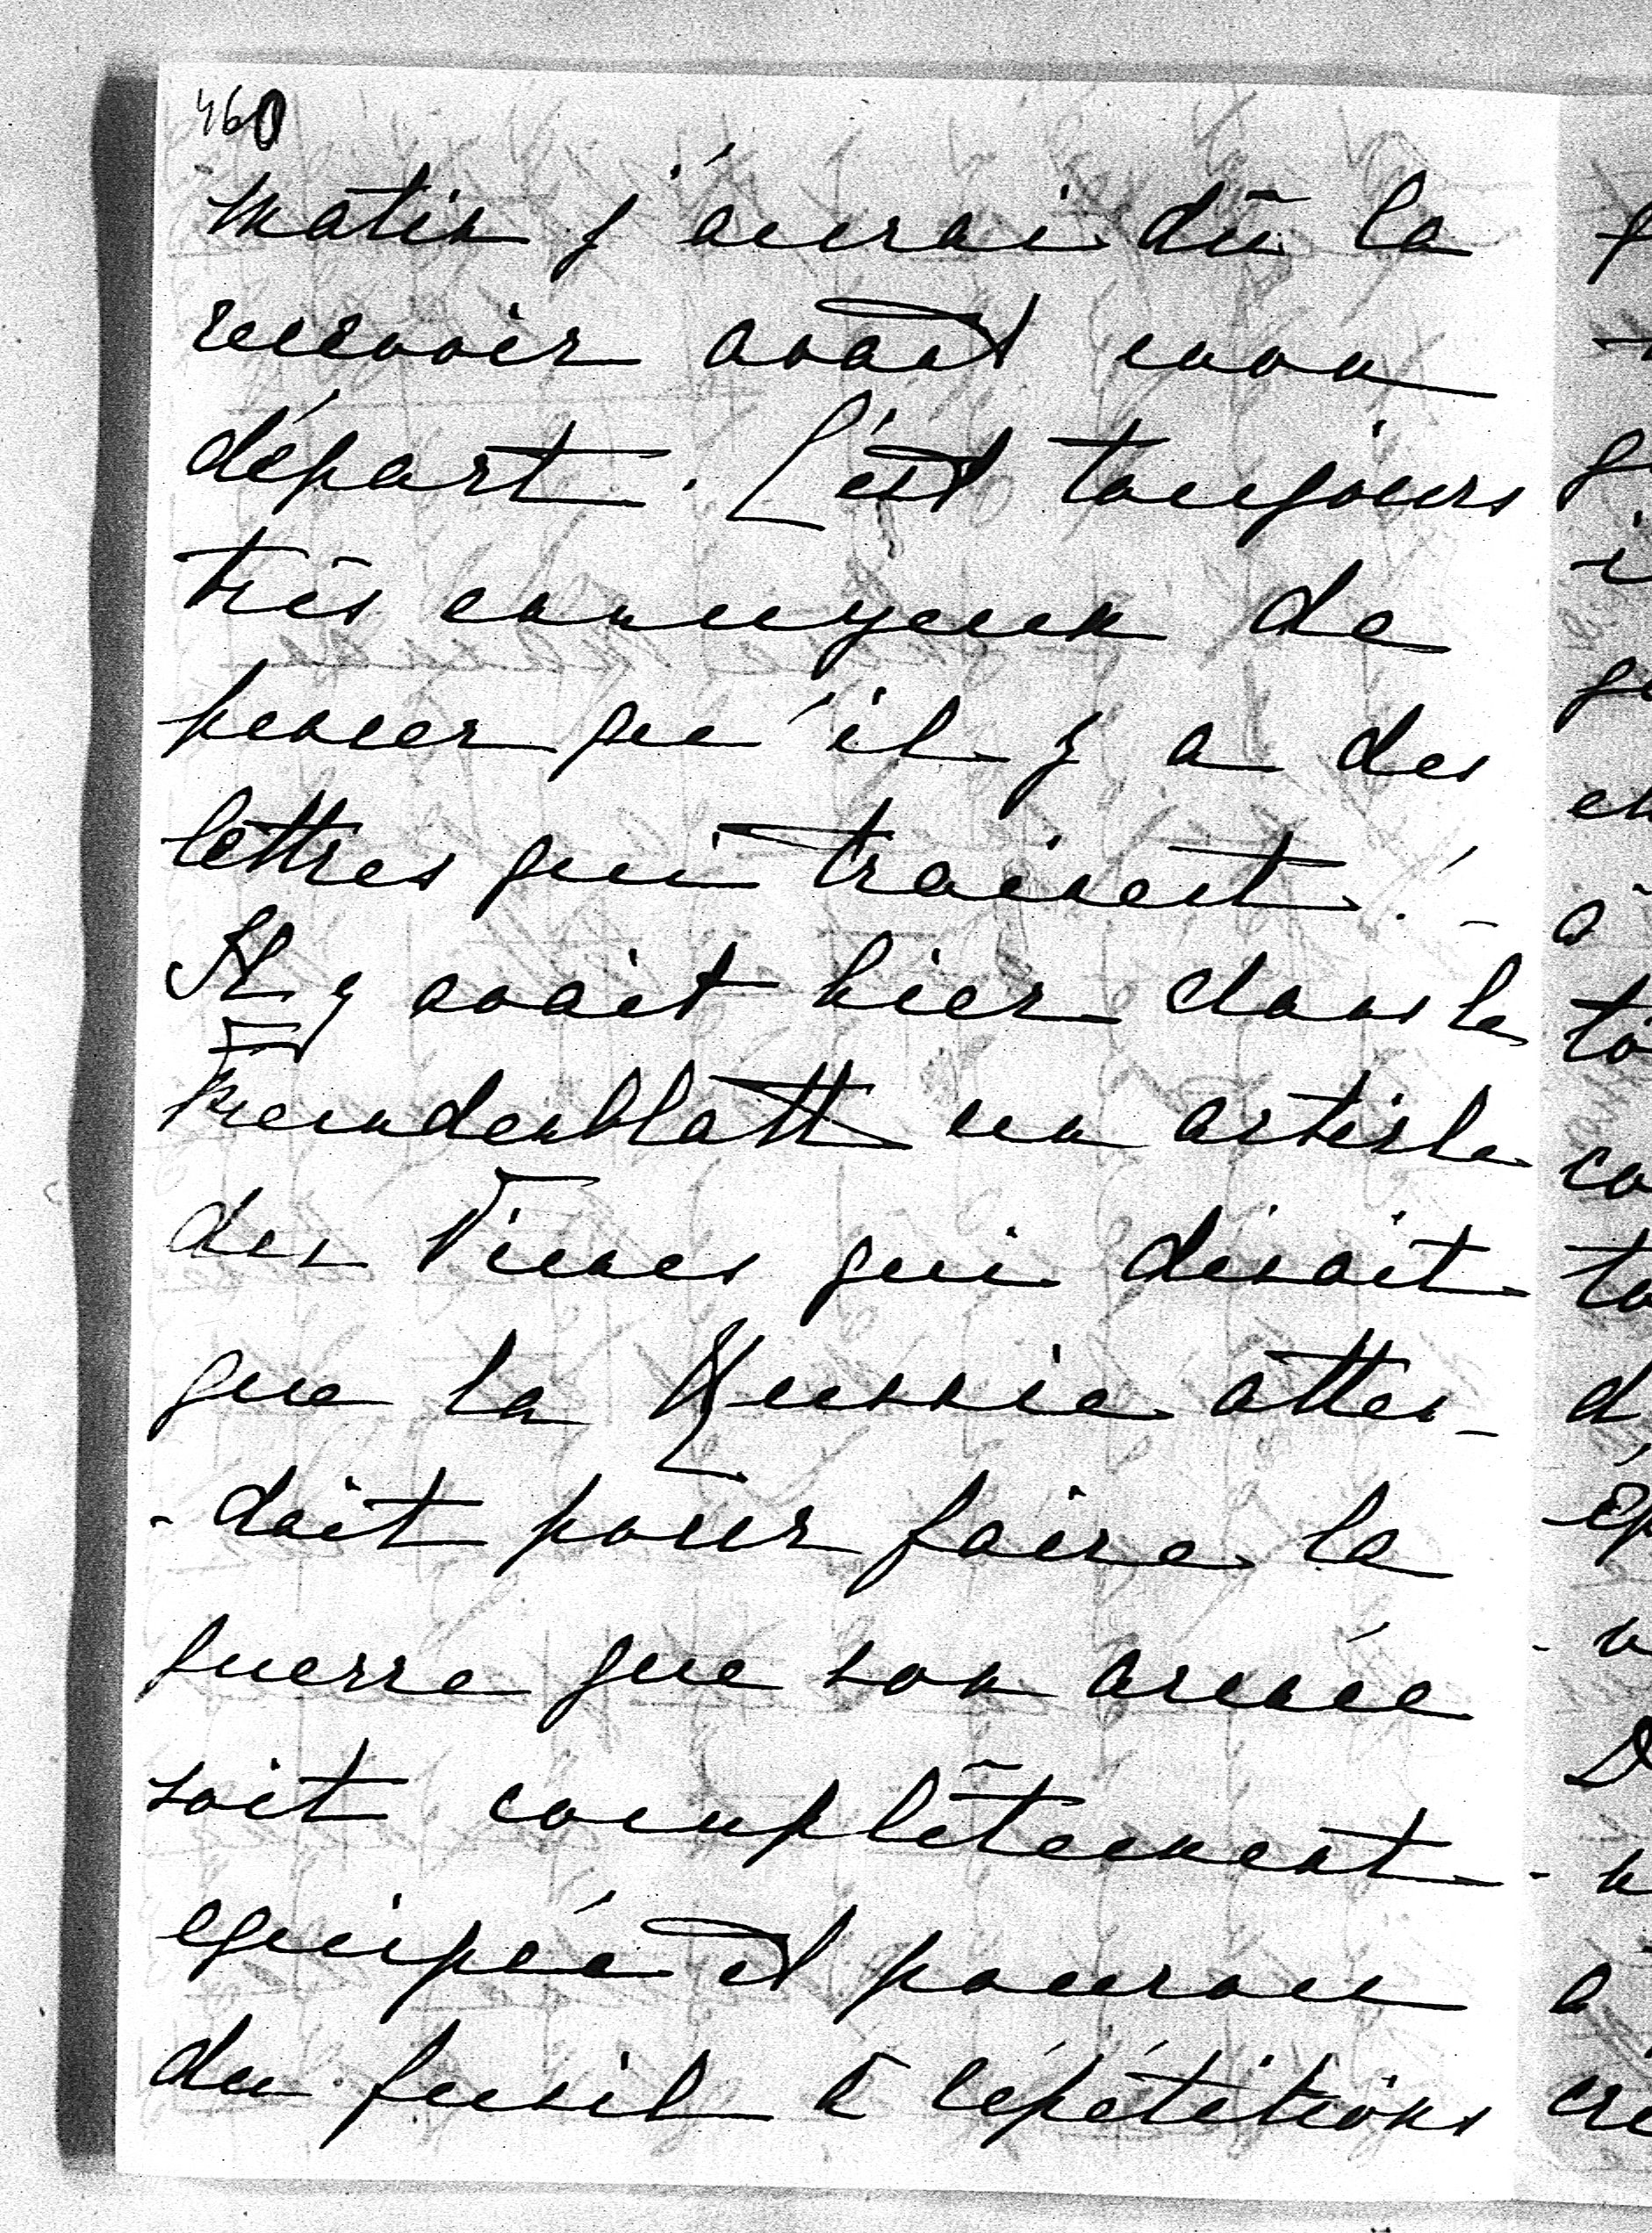 460
matin j'aurai dû la
recevoir avant mon
départ. C'est toujours
très ennuyeux de
penser qu'il y a des
lettres qui trainent. –
Il y avait hier dans le
Fremdenblatt un article
du Times qui disait
que la Russie atten-
-dait pour faire la
guerre que son armée
soit complètement
equipée et pourvue
du fusil à répétitions